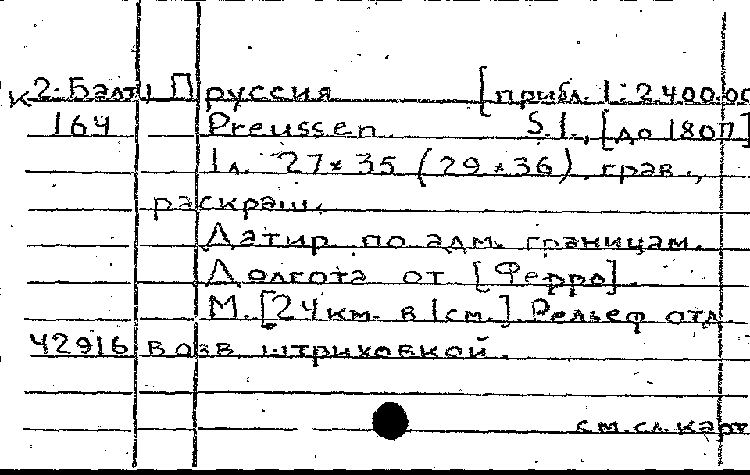 К 2-Балт, Пруссия [прибл. 1:2.400.00
164 Preussen. S.l., [до 1807]
1 л. 27×35 (29×36). грав.,
раскраш.
Датир по адм. границам.
Долгота от [Ферро].
М. [24 км. в 1 см.] Рельеф отд.
42916 возв. штриховкой.
см. сл. карт